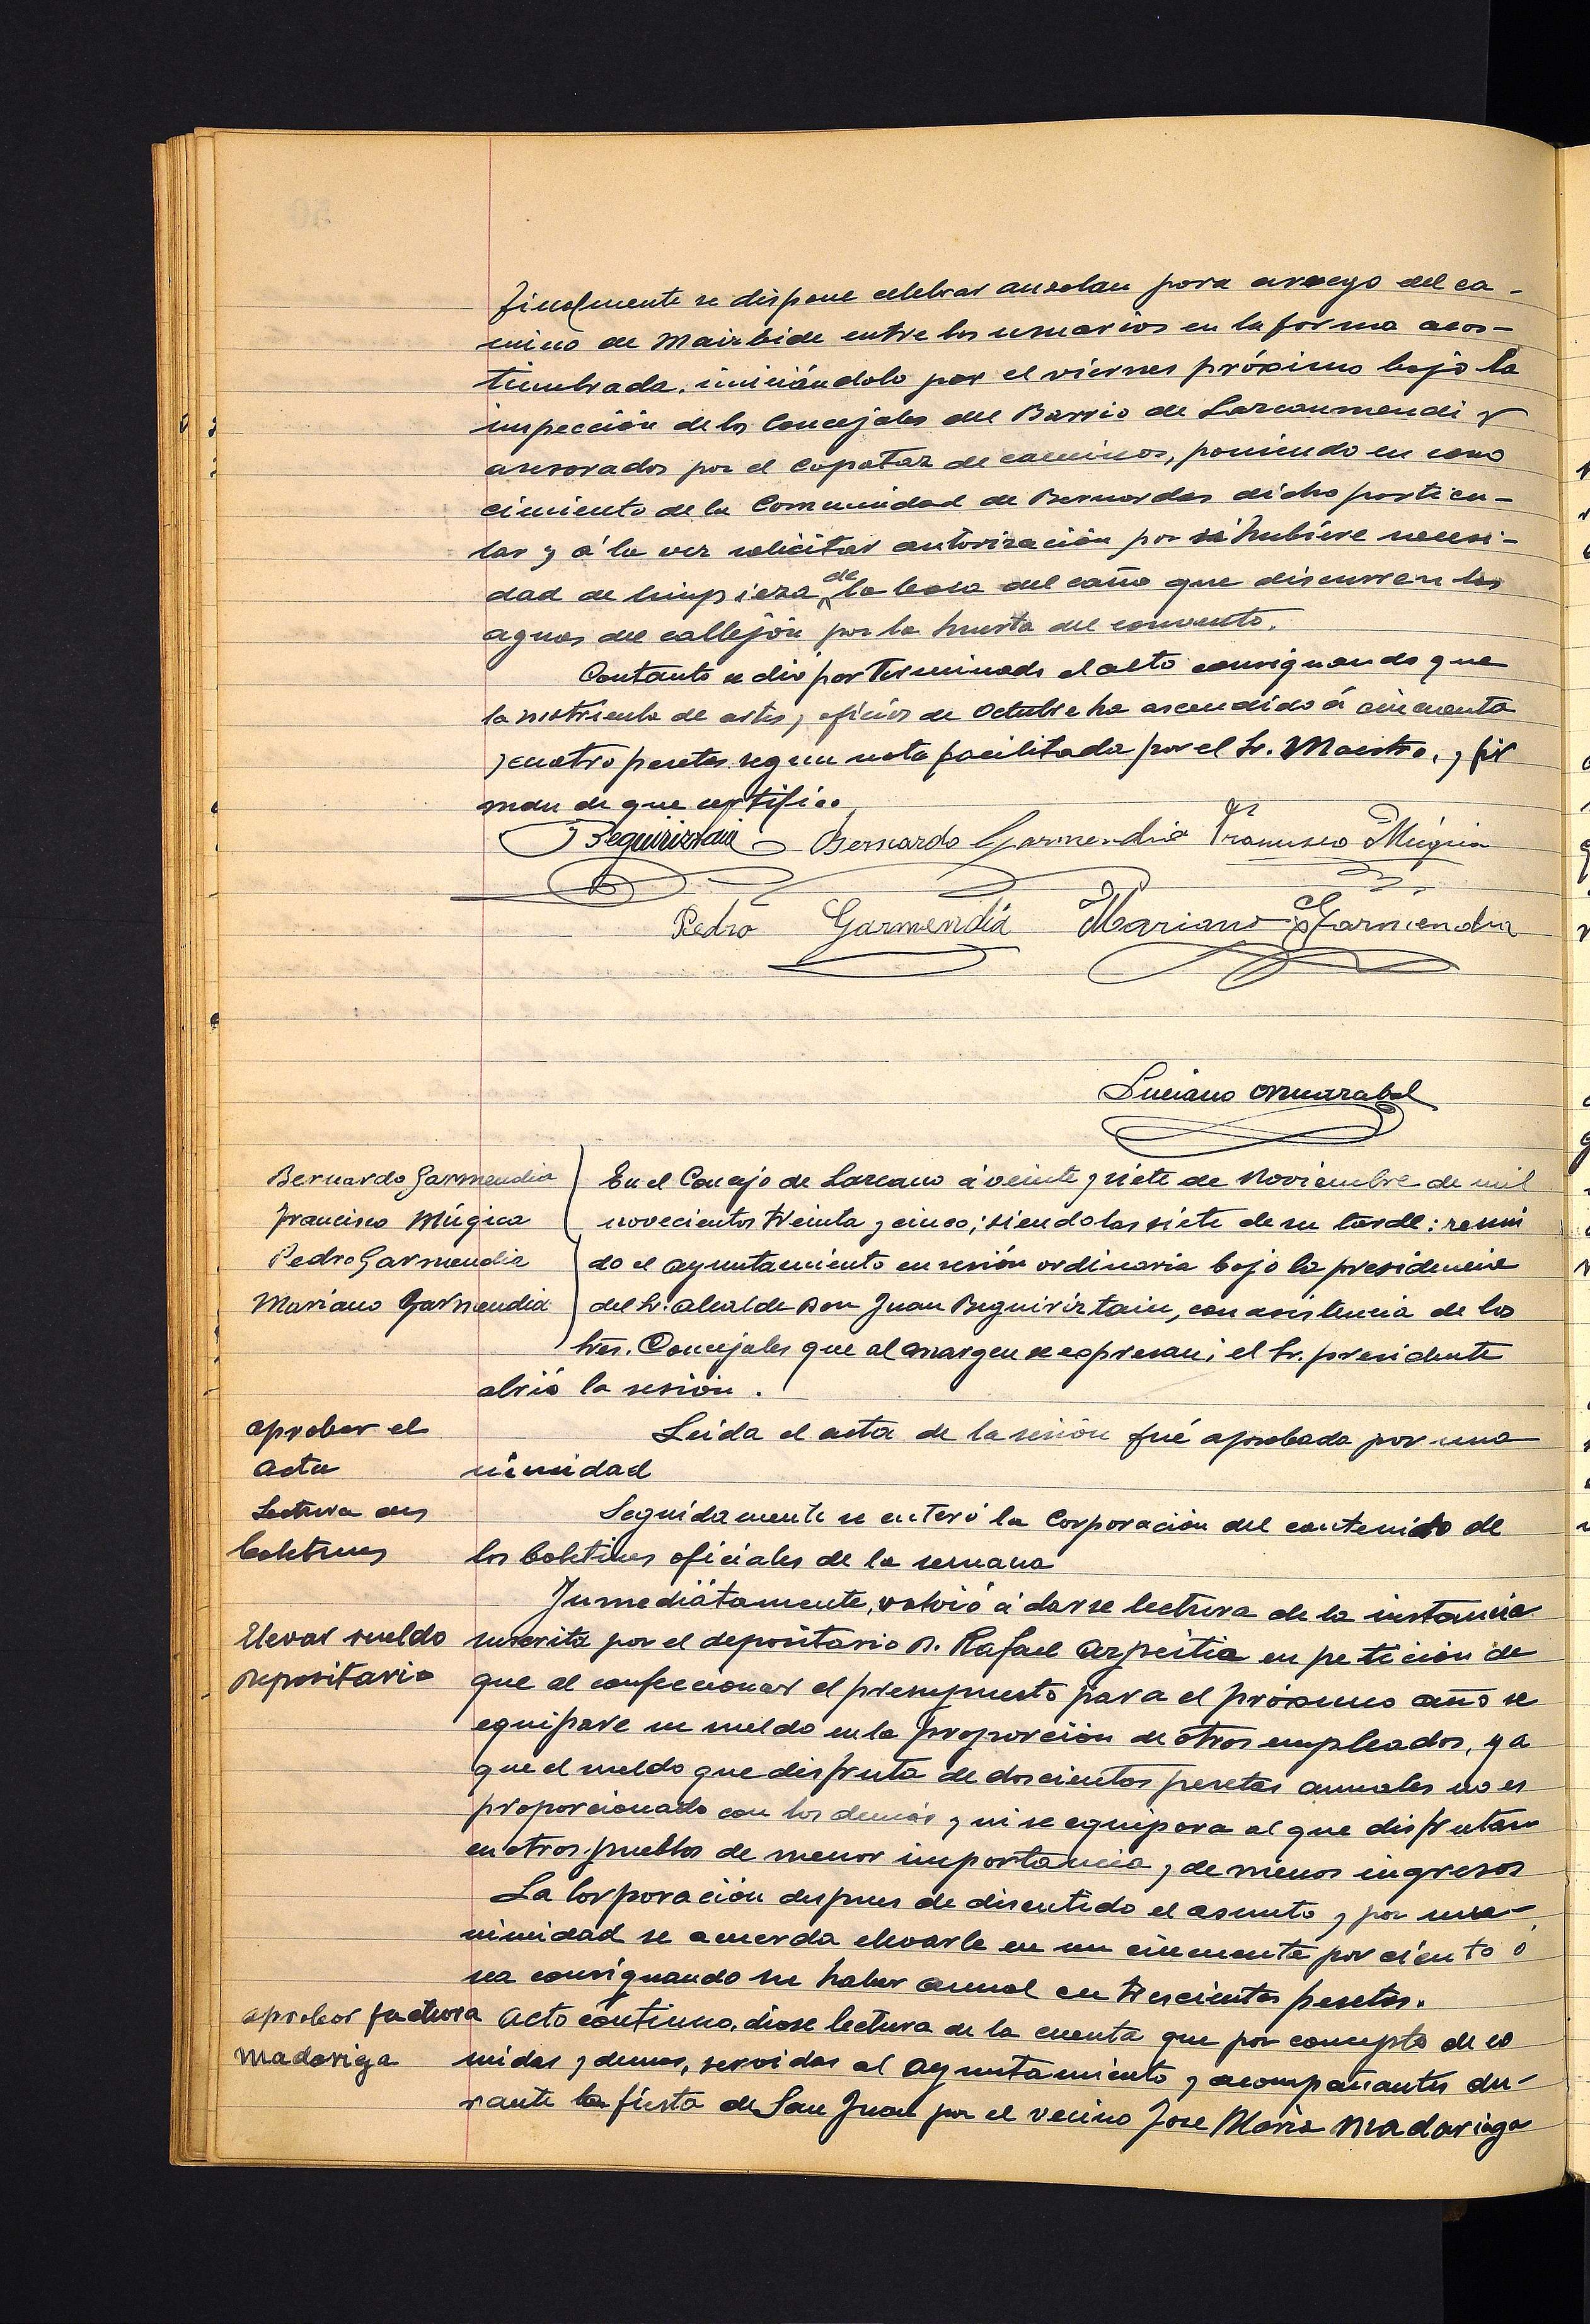 Finalmente se dispone celebrar auzolan para arreyo del ca-
mino de Mairbide entre los usuarios en la forma acos-
tumbrada, iniciándolo por el viernes próximo bajo la
inspección de los Concejales del Barrio de Lazcanomendi y
asesorados por el capataz de caminos, poniendo en cono
cimiento de la Comunidad de Bernardas dicho particu-
lar y á la vez solicitar autorización por si hubiere necesi-
dad de limpieza de la boca del caño que discurren las
aguas del callejón por la huerta del convento.
Contanto se dió por terminado el acto consignando que
la matricula de artes y oficios de Octubre ha ascendido á cincuenta
y cuatro pesetas segun nota facilitada por el Sr. Maestro, y fir
man de que certifico,
Beguiriztain Bernardo Garmendia Francisco Múgica
Pedro Garmendia Mariano Garmendia
Luciano
Bernardo Garmendia
Francisco Múgica
Pedro Garmendia
Mariano Garmendia
En el Concejo de Lazcano á veinte y siete de Noviembre de mil
novecientos treinta y cinco; siendo las siete de su tarde: reuni
do el ayuntamiento en sesión ordinaria bajo la presidencia
del Sr. alcalde Don Juan Beguiriztain, con asistencia de los
Sres. Concejales que al margen se expresan; el Sr. presidente
abrió la sesión.
aprobar el
acta
Leida el acta de la sesión fué aprobada por una
nimidad
Lectura de
boletines
Seguidamente se enteró la Corporación del contenido de
los boletines oficiales de la semana
Elevar sueldo
Depositario
Inmediátamente, volvió á darse lectura de la instancia
suscrita por el depositario D. Rafael Azpeitia en petición de
que al confeccionar el presupuesto para el próximo año se
equipare su sueldo en la proporción de otros empleados, ya
que el sueldo que disfruta de doscientas pesetas anuales no es
proporcionado con los demás y ni se equipara al que disfrutan
en otros pueblos de menor importancia y de menos ingresos
La Corporación despues de discutido el asunto y por una-
nimidad se acuerda elevarle en un cincuenta por ciento ó
sea consignando su haber anual en trescientas pesetas.
aprobar factura
Madariga
Acto continuo, diose lectura de la cuenta que por concepto de co
midas y demas, servidas al Ayuntamiento y acompañantes du-
rante la fiesta de San Juan por el vecino Jose Maria Madariaga